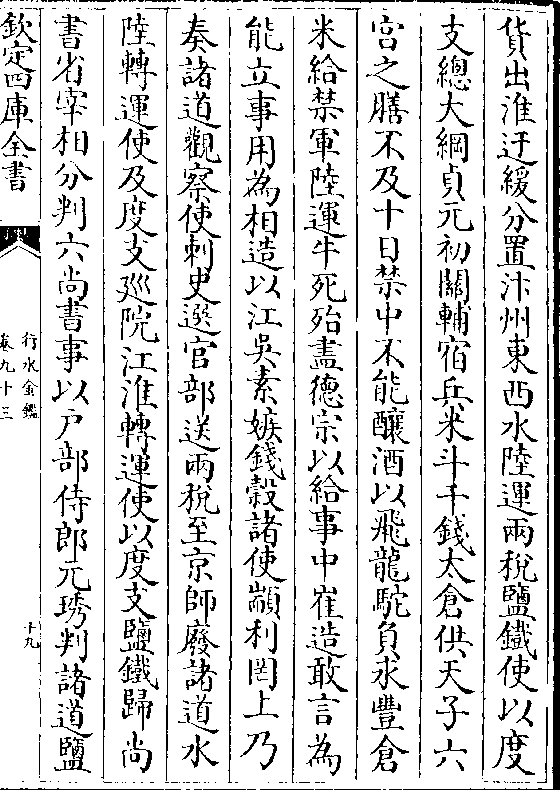 貨出淮迂緩分置汴州東西水陸運兩稅鹽鐵使以度
支總大綱貞元初關輔宿兵米斗千錢太倉供天子六
宫之膳不及十日禁中不能釀酒以飛龍駝負永豐倉
米給禁軍陸運牛死殆盡德宗以給事中崔造敢言為
能立事用為相造以江吳素嫉錢穀諸使顓利罔上乃
奏諸道觀察使刺史選官部送兩稅至京師廢諸道水
陸轉運使及度支巡院江淮轉運使以度支鹽鐵歸尚
書省宰相分判六尚書事以戶部侍郎元琇判諸道鹽
欽定四庫全書
行水金鑑
卷九十三
十九